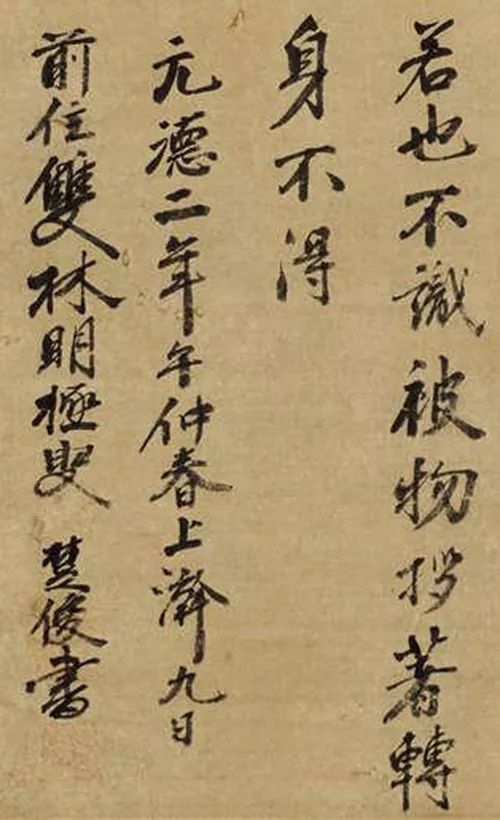 若也不識被物拶著轉
身不得
元德二年午仲春上澣九日
前住雙林明極叟 楚俊書